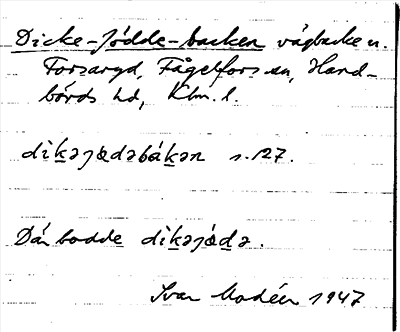 Dicke-jödde-backen vägbacke n.
Forsaryd, Fågelfors sn, Hand-
börds hd, Klm. l.
dik̲əjɷd̲əbák̲ən s. 127.
Där bodde dik̲əjɷ́d̲ə.
Ivar Modéer 1947